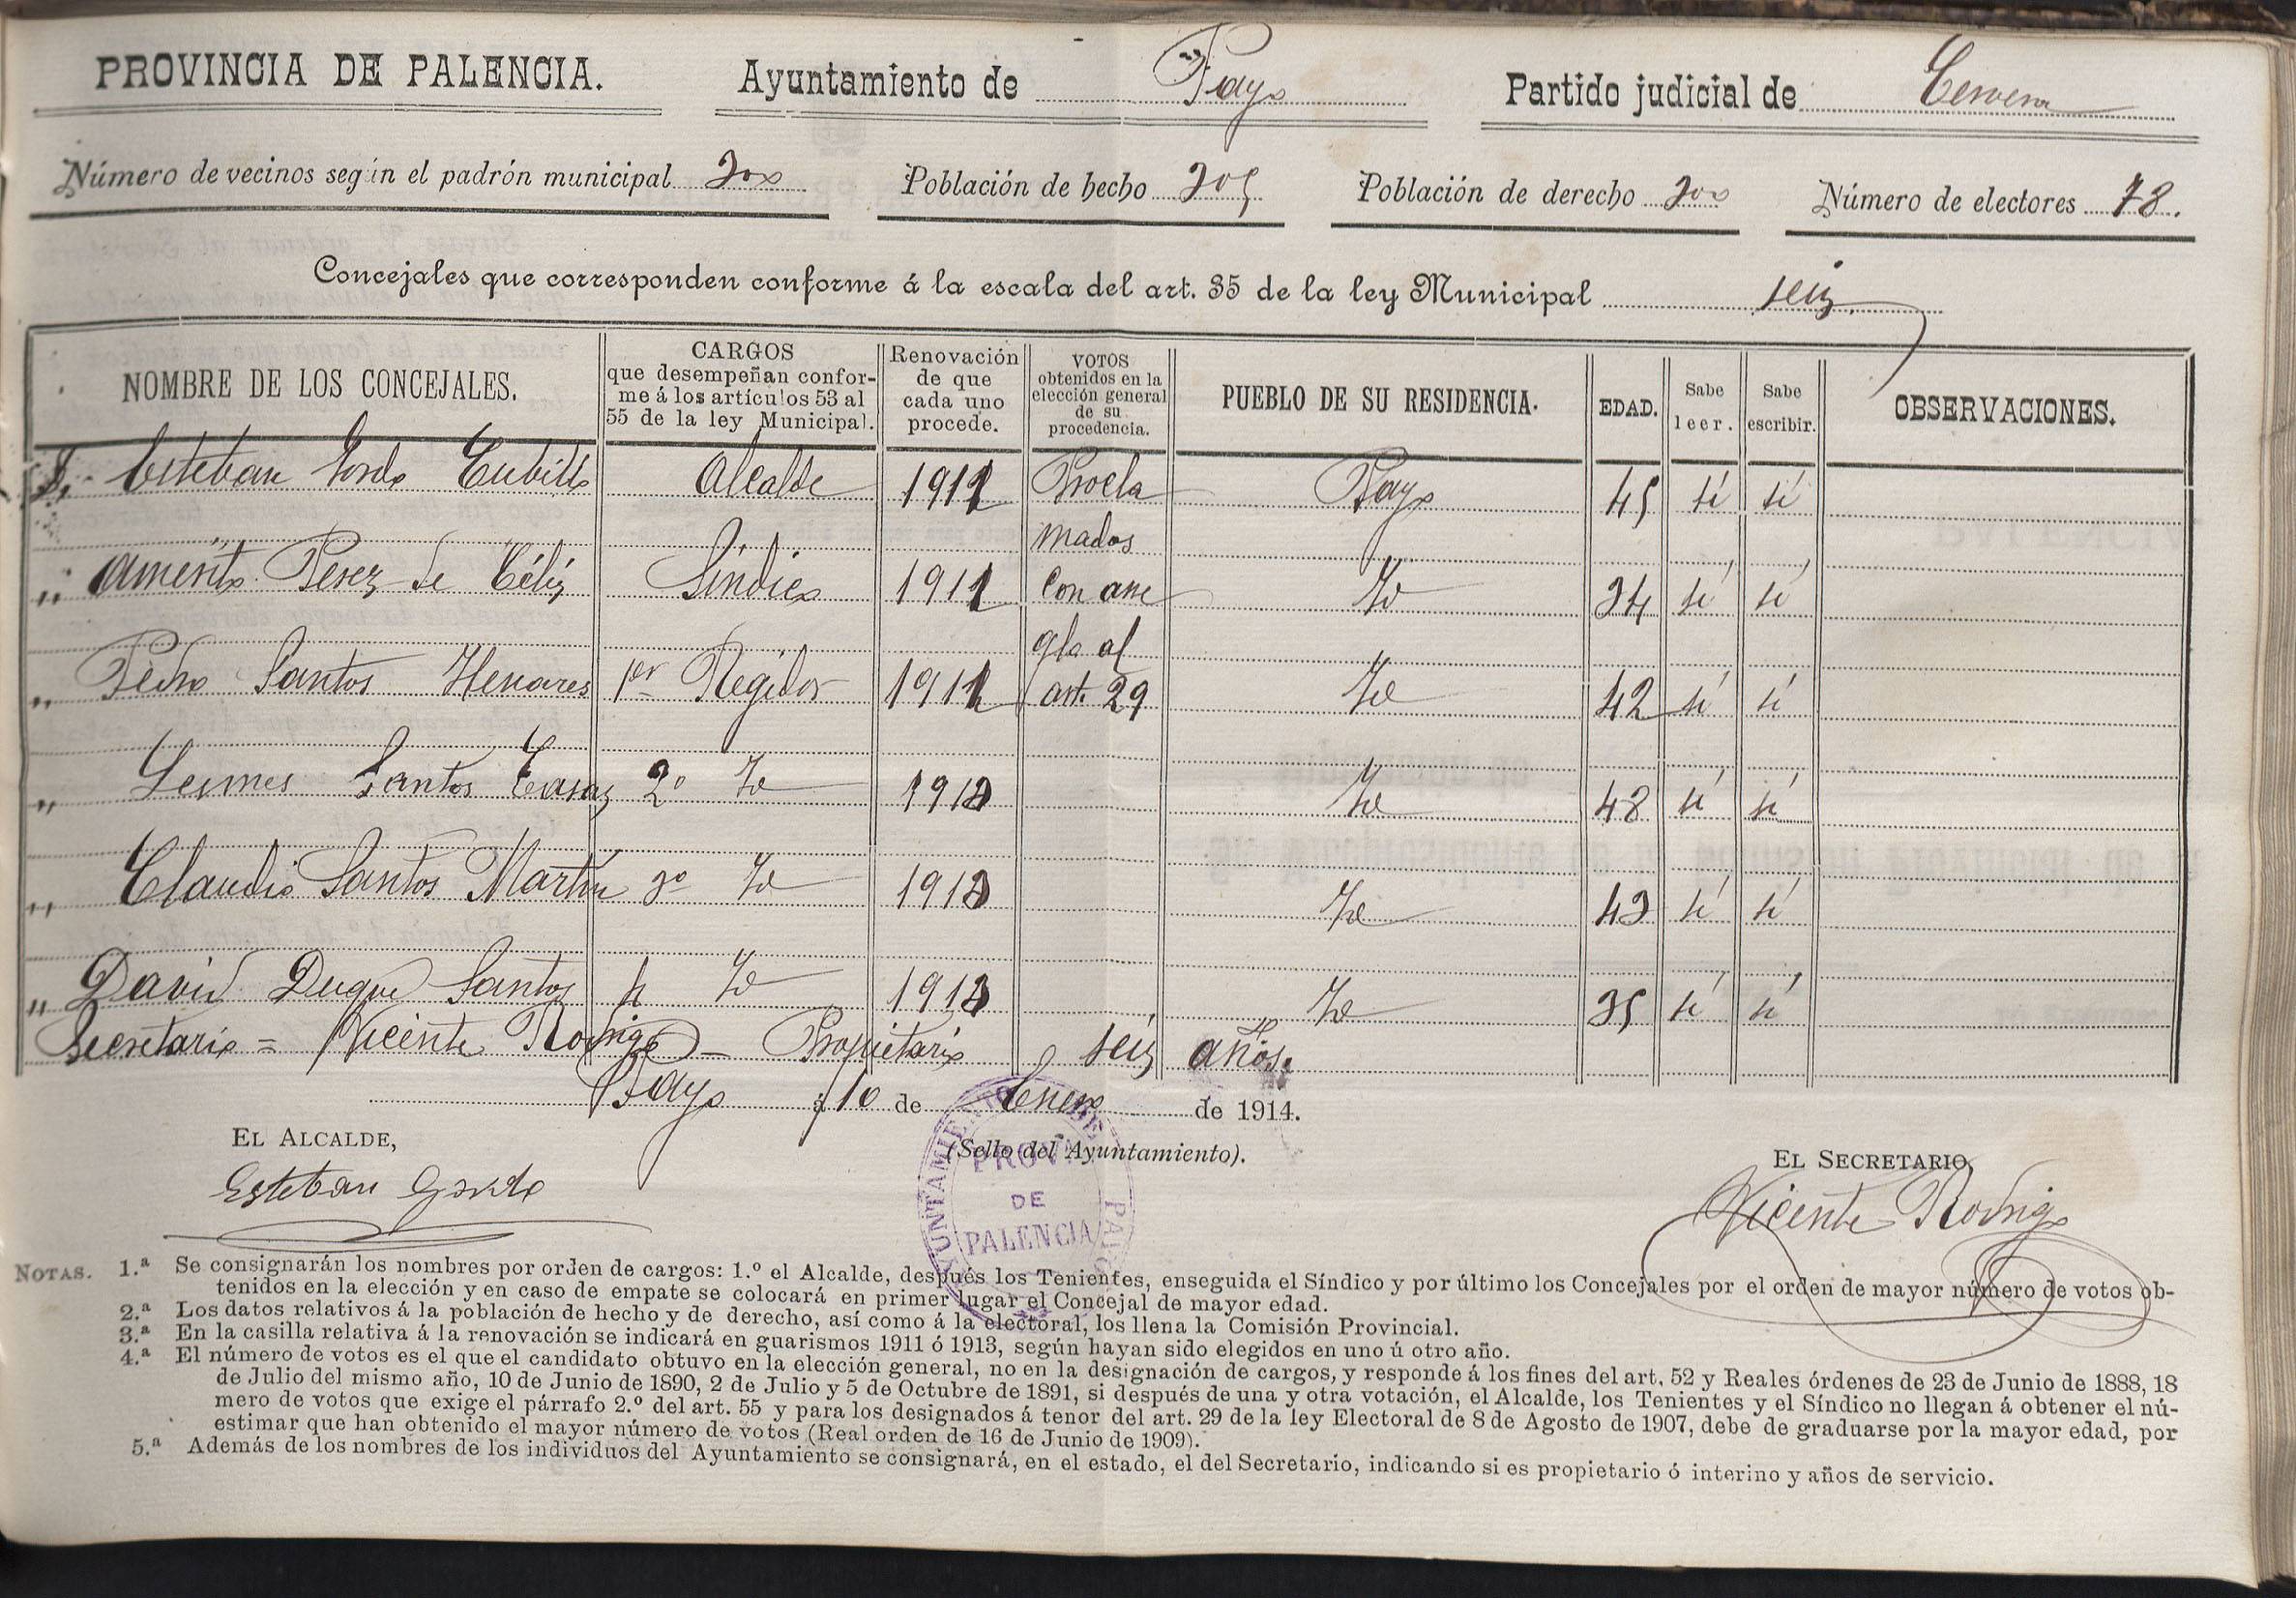 PROVINCIA DE PALENCIA. Ayuntamiento de Payo Partido judicial de Cervera
Número de vecinos según el padrón municipal 300 Población de hecho 305 Población de derecho 300 Número de electores 78.
Concejales que corresponden conforme á la escala del art. 35 de la ley Municipal seis.
NOMBRE DE LOS CONCEJALES. CARGOS que desempeñan conforme á los artículos 53 al 55 de la ley Municipal. Renovación de que cada uno procede. VOTOS obtenidos en la elección general de su procedencia. PUEBLO DE SU RESIDENCIA. EDAD. Sabe leer. Sabe escribir. OBSERVACIONES.
D. Esteban Gordo Cubillo Alcalde 1911 Procla Payo 45 sí sí
mados
" Amerito Perez de Célis Síndico 1911 con arre Id 34 sí sí
glo al
" Pedro Santos Henares 1er Regidor 1911 art. 29 Id 42 sí sí
" Lesmes Santos Casas 2º Id 1913 Id 48 sí sí
" Claudio Santos Martín 3º Id 1913 Id 43 sí sí
" David Duque Santos 4 Id 1913 Id 35 sí sí
Secretario = Vicente Rodrigo - Propietario seis años.
Payo á 10 de Enero de 1914.
EL ALCALDE, (Sello del Ayuntamiento). EL SECRETARIO,
Esteban Gordo Vicente Rodrigo
AYUNTAMIENTO DE
PROVª
DE
PALENCIA
NOTAS. 1.ª Se consignarán los nombres por orden de cargos: 1.º el Alcalde, después los Tenientes, enseguida el Síndico y por último los Concejales por el orden de mayor número de votos ob-
tenidos en la elección y en caso de empate se colocará en primer lugar el Concejal de mayor edad.
2.ª Los datos relativos á la población de hecho y de derecho, así como á la electoral, los llena la Comisión Provincial.
3.ª En la casilla relativa á la renovación se indicará en guarismos 1911 ó 1913, según hayan sido elegidos en uno ú otro año.
4.ª El número de votos es el que el candidato obtuvo en la elección general, no en la designación de cargos, y responde á los fines del art. 52 y Reales órdenes de 23 de Junio de 1888, 18
de Julio del mismo año, 10 de Junio de 1890, 2 de Julio y 5 de Octubre de 1891, si después de una y otra votación, el Alcalde, los Tenientes y el Síndico no llegan á obtener el nú-
mero de votos que exige el párrafo 2.º del art. 55 y para los designados á tenor del art. 29 de la ley Electoral de 8 de Agosto de 1907, debe de graduarse por la mayor edad, por
estimar que han obtenido el mayor número de votos (Real orden de 16 de Junio de 1909).
5.ª Además de los nombres de los individuos del Ayuntamiento se consignará, en el estado, el del Secretario, indicando si es propietario ó interino y años de servicio.